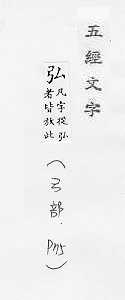 五經文字
弘凡字從弘者皆放此
（弓部.P75）